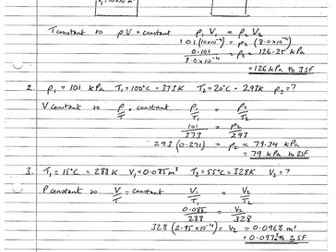 T constant so pV = constant p₁ V₁ = p₂ V₂
101 (10×10⁻⁴) = p₂ (8.0×10⁻⁴)
0.101 / 8.0×10⁻⁴ = p₂ = 126.25 kPa
= 126 kPa to 3SF
2. p₁ = 101 kPa T₁ = 100°C = 373K T₂ = 20°C = 293K p₂ = ?
V constant so p/T = constant p₁/T₁ = p₂/T₂
101/373 = p₂/293
293 (0.271) = p₂ = 79.34 kPa
= 79 kPa to 2SF
3. T₁ = 15°C = 288K V₁ = 0.085m³ T₂ = 55°C = 328K V₂ = ?
P constant so V/T = constant V₁/T₁ = V₂/T₂
0.085/288 = V₂/328
328 (2.95×10⁻⁴) = V₂ = 0.0968 m³
= 0.097m³ 2SF